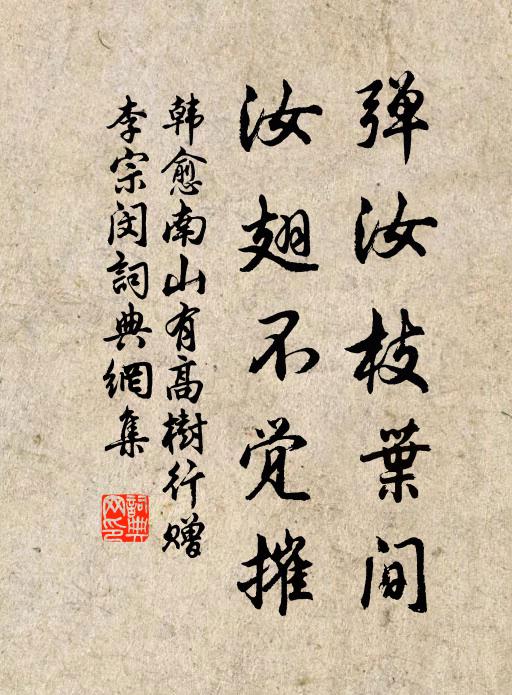 弹汝枝葉间
汝翅不觉摧
韩愈南山有高樹行赠
李宗闵詞典網集
詞典网印